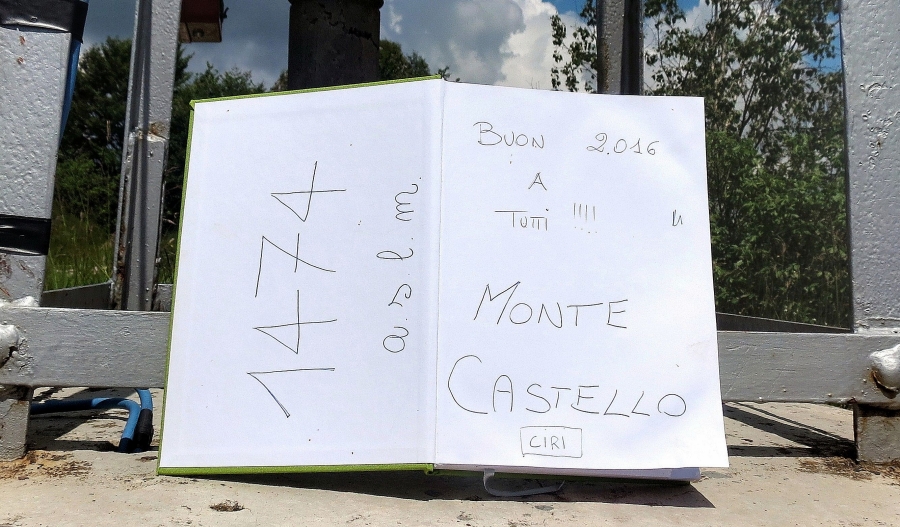 1474
a.s.l.m.
BUON 2.016
A
TUTTI !!!!
MONTE
CASTELLO
CIRI